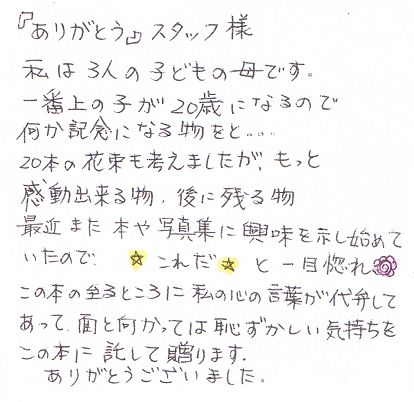 『ありがとう』スタッフ様
私は3人の子どもの母です。
一番上の子が20歳になるので
何か記念になる物をと....
20本の花束も考えましたが、もっと
感動出来る物、後に残る物
最近また本や写真集に興味を示し始めて
いたので、☆これだ☆と一目惚れ
この本の至るところに私の心の言葉が代弁して
あって、面と向かっては恥ずかしい気持ちを
この本に託して贈ります。
ありがとうございました。